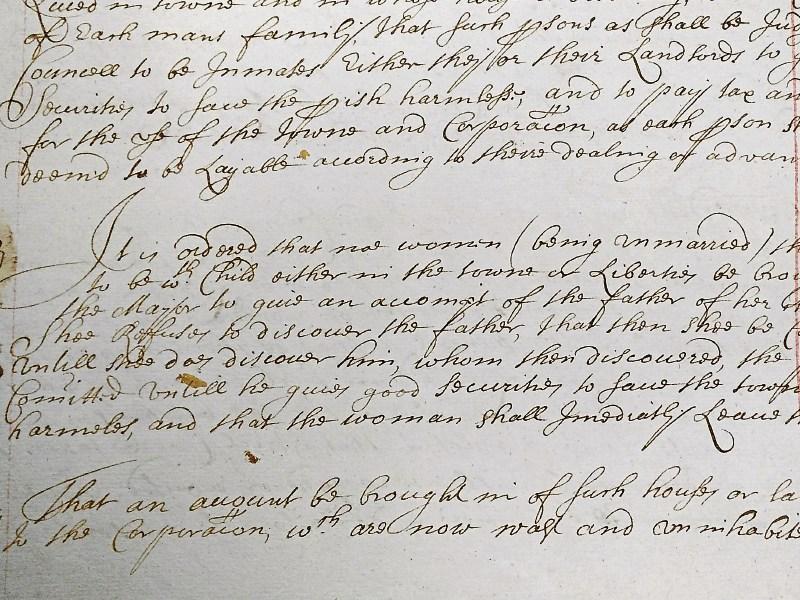 of Each mans family, that such psons as shall be Jud
Councell to be Inmates Either they or their Landlords to g
Securities to save the pish harmlesse, and to pay tax an
for the vse of the towne and Corporacon, as each pson sh
deemd to be Layable according to theire dealing or advan
It is ordered that noe women (being vnmarried) th
to be wth Child either in the towne or Liberties be brou
the Mayor to giue an accompt of the father of her Ch
Shee Reffuses to discover the father, that then shee be C
vntill shee doe discouer him, whom then discovered, the
Comitted vntill he giues good securities to saue the town
harmeles, and that the woman shall Jmediatly Leaue t
That an account be brought in of such houses or la
to the Corporacon, wth are now wast and vninhabite